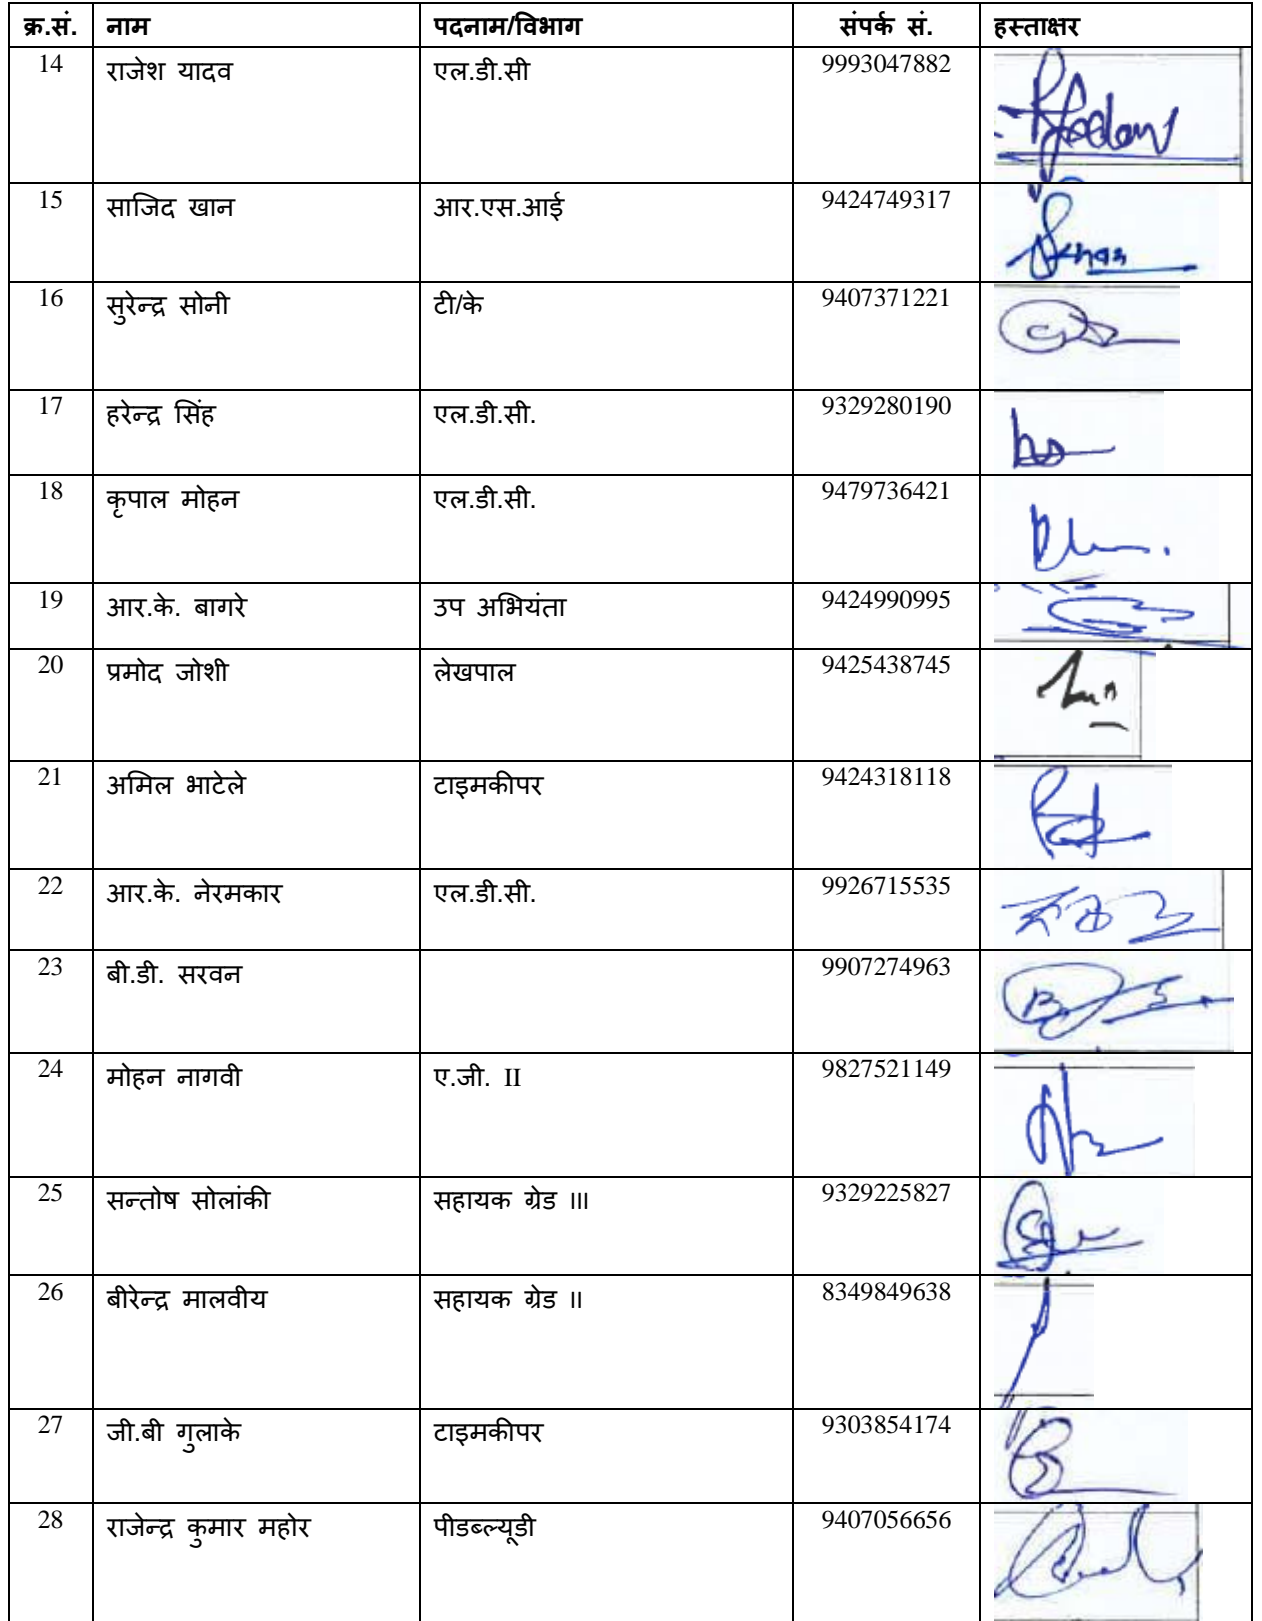 क्र.सं. नाम पदनाम/विभाग संपर्क सं. हस्ताक्षर
14 राजेश यादव एल.डी.सी 9993047882
15 साजिद खान आर.एस.आई 9424749317
16 सुरेन्द्र सोनी टी/के 9407371221
17 हरेन्द्र सिंह एल.डी.सी. 9329280190
18 कृपाल मोहन एल.डी.सी. 9479736421
19 आर.के. बागरे उप अभियंता 9424990995
20 प्रमोद जोशी लेखपाल 9425438745
21 अमिल भाटेले टाइमकीपर 9424318118
22 आर.के. नेरमकार एल.डी.सी. 9926715535
23 बी.डी. सरवन 9907274963
24 मोहन नागवी ए.जी. II 9827521149
25 सन्तोष सोलांकी सहायक ग्रेड III 9329225827
26 बीरेन्द्र मालवीय सहायक ग्रेड II 8349849638
27 जी.बी गुलाके टाइमकीपर 9303854174
28 राजेन्द्र कुमार महोर पीडब्ल्यूडी 9407056656